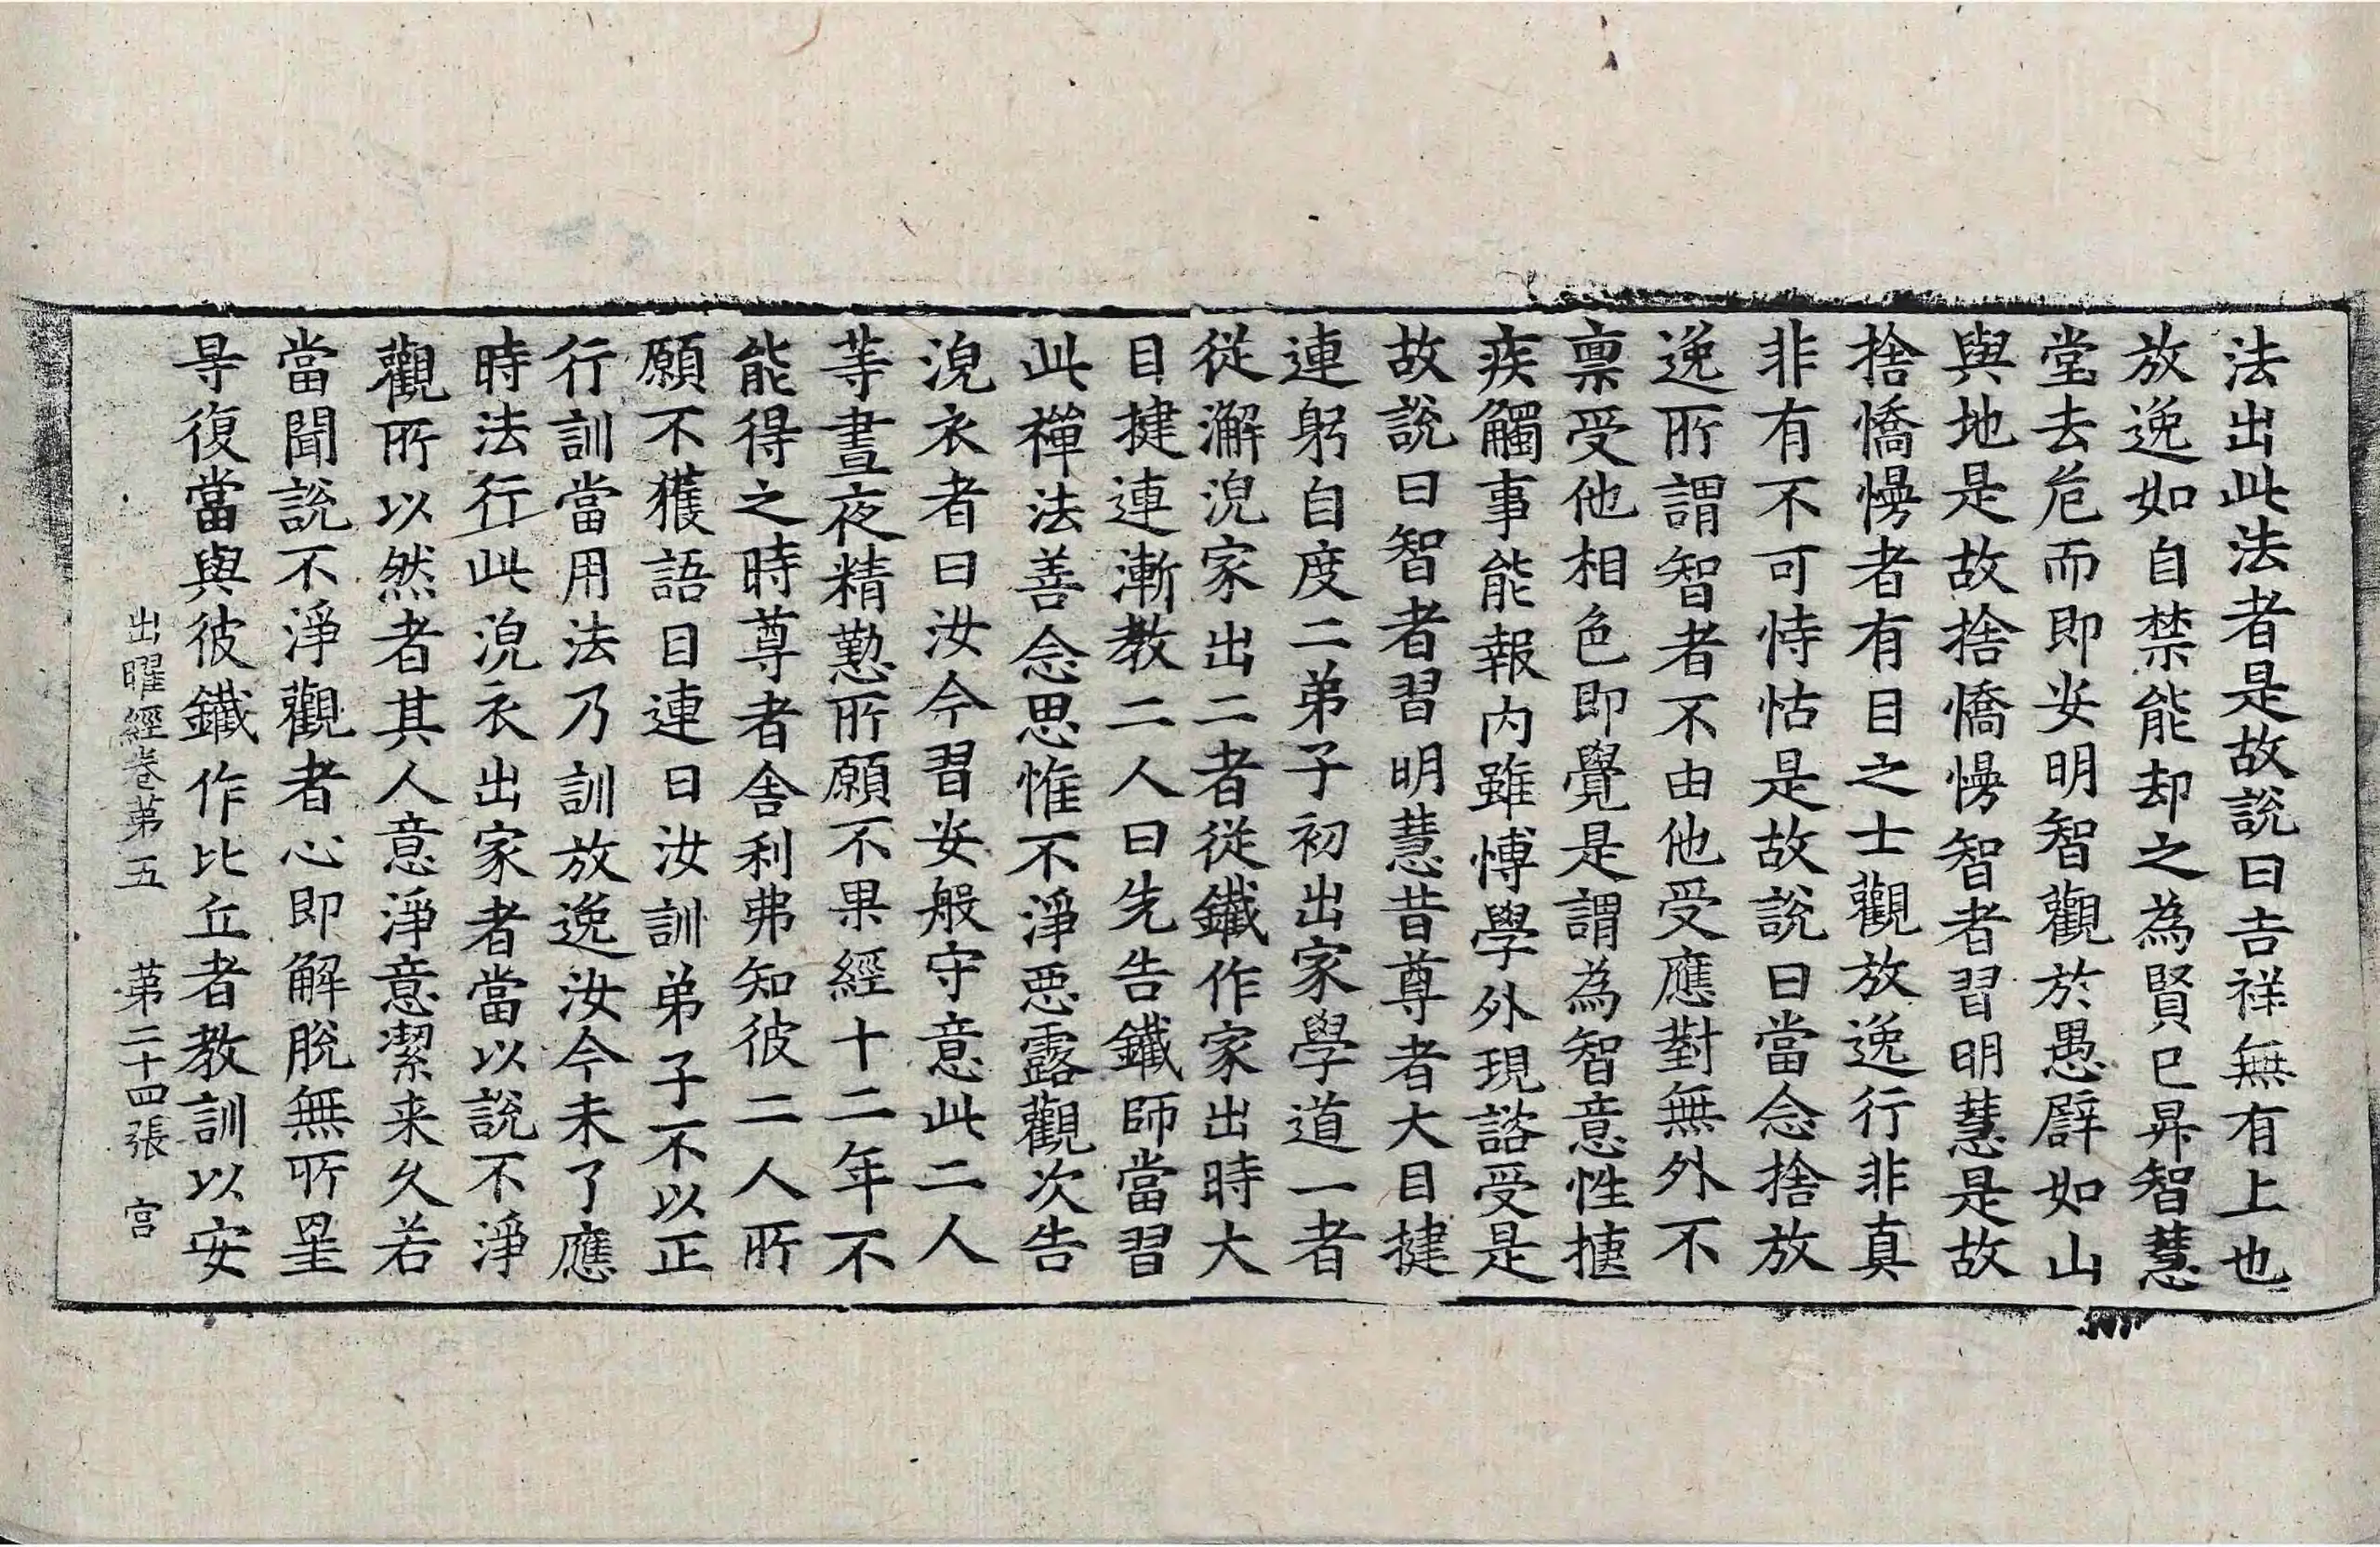 法出此法者是故說曰吉祥無有上也
放逸如自禁能却之為賢已昇智慧
堂去危而即安明智觀於愚譬如山
與地是故捨憍慢智者習明慧是故
捨憍慢者有目之士觀放逸行非真
非有不可恃怙是故說曰當念捨放
逸所謂智者不由他受應對無外不
禀受他相色即覺是謂為智意性𢮦
疾觸事能報内雖愽學外現諮受是
故說曰智者習明慧昔尊者大目揵
連躬自度二弟子初出家學道一者
從澣浣家出二者從鐵作家出時大
目揵連漸教二人曰先告鐵師當習
此禪法善念思惟不淨惡露觀次告
浣衣者曰汝今習安般守意此二人
等晝夜精懃所願不果經十二年不
能得之時尊者舍利弗知彼二人所
願不獲語目連曰汝訓弟子不以正
行訓當用法乃訓放逸汝今未了應
時法行此浣衣出家者當以說不淨
觀所以然者其人意淨意潔来久若
當聞說不淨觀者心即解脫無所罣
㝵復當與彼鐵作比丘者教訓以安
出曜經卷第五　第二十四張　宫